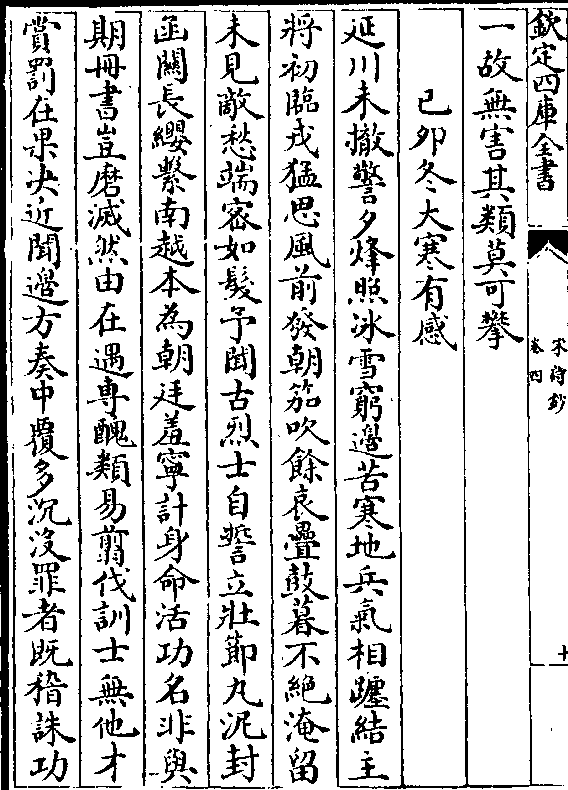 欽定四庫全書
宋詩鈔
卷四
十
一故無害其類莫可攀
己卯冬大寒有感
延川未撤警夕烽照冰雪窮邉苦寒地兵氣相躔結主
將初臨戎猛思風前發朝笳吹餘哀疊鼓暮不絶淹留
未見敵愁端宻如髮予聞古烈士自誓立壯節丸泥封
函關長纓繫南越本為朝廷羞寧計身命活功名非與
期冊書豈磨滅然由在遇專醜類易翦伐訓士無他才
賞罰在果决近聞邉方奏中覆多沉沒罪者既稽誅功